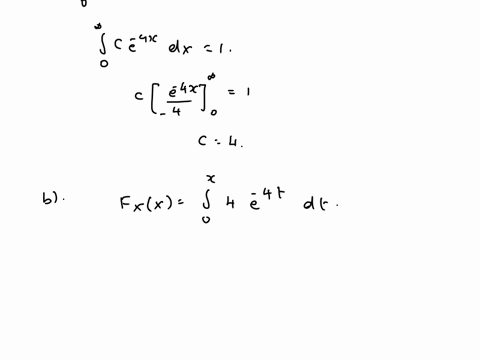 ∫₀^∞ C e^{-4x} dx = 1.
C [e^{-4x}/-4]₀^∞ = 1
C = 4.
b). F_X(x) = ∫₀^x 4 e^{-4t} dt.